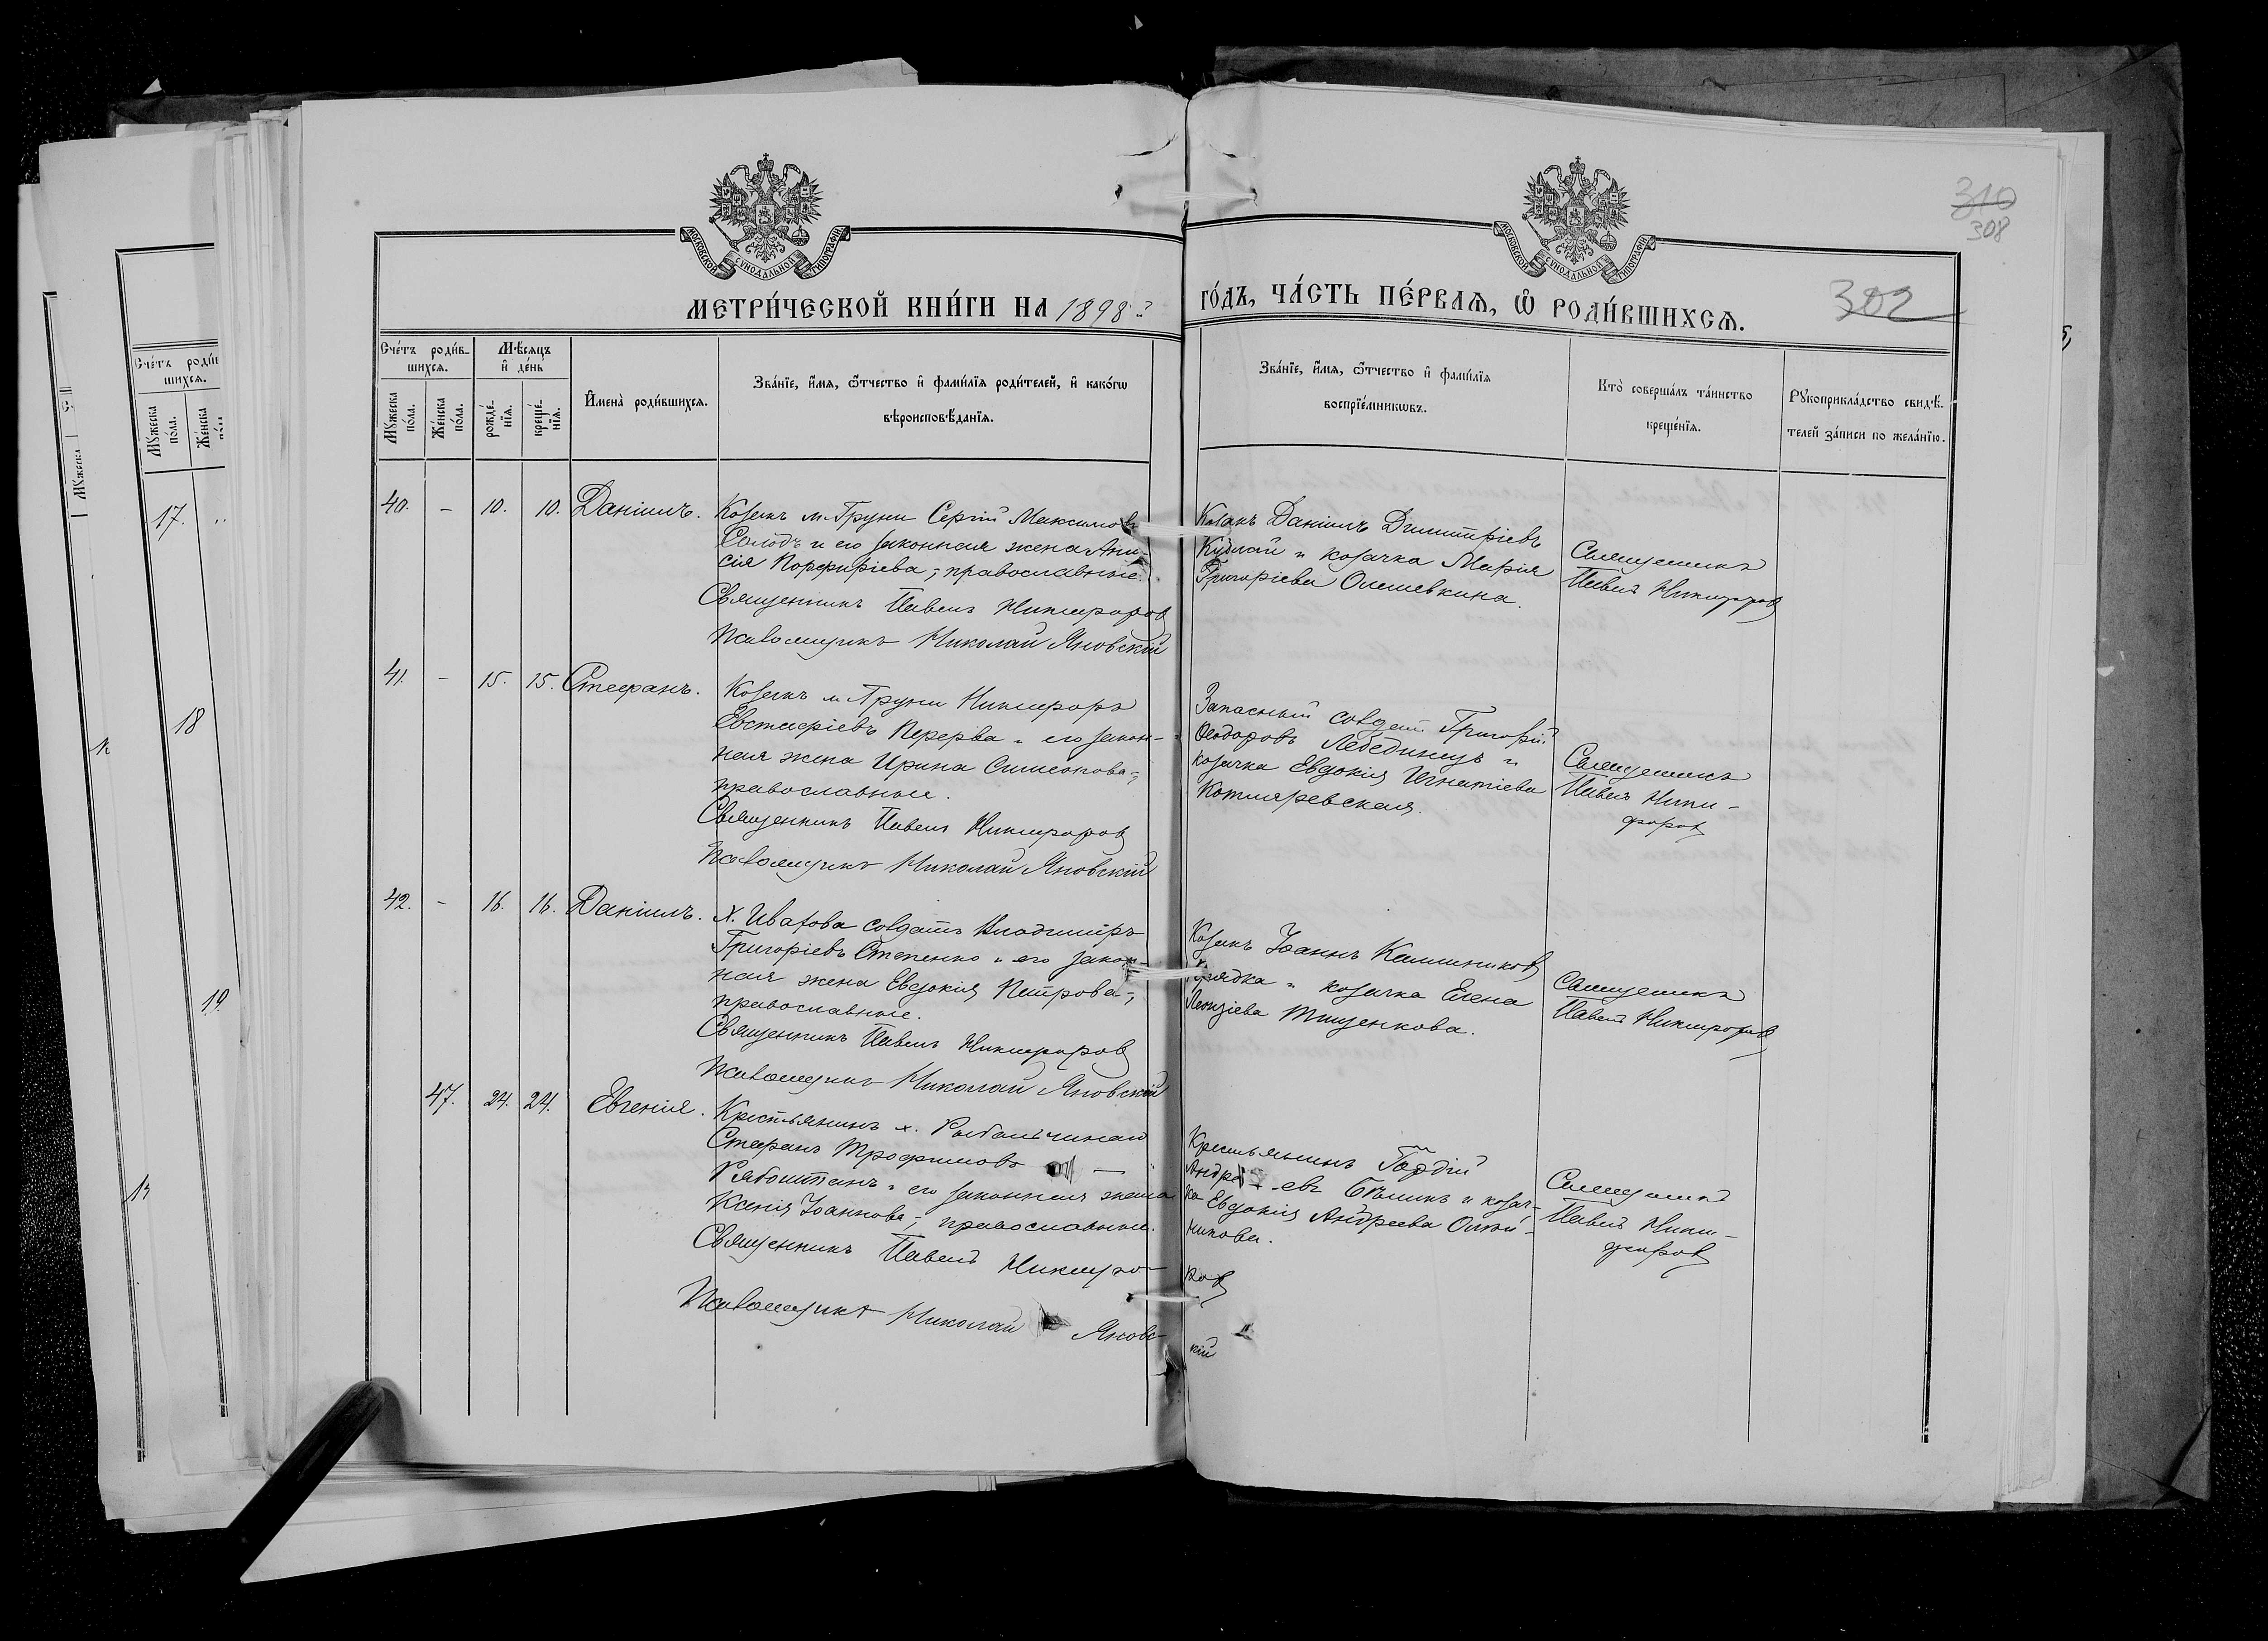 310
308
302
МОСКОВСКОЙ СѴНОДАЛЬНОЙ ТИПОГРАФІИ
МОСКОВСКОЙ СѴНОДАЛЬНОЙ ТИПОГРАФІИ
МЕТРИ́ЧЕСКОЙ КНИ́ГИ НА 1898 й
ГО́ДЪ, ЧА́СТЬ ПЕ́РВАѦ, Ѿ РОДИ́ВШИХСѦ.
Сче́тъ роди́в-
шихсѧ.
Мꙋ́жеска по́ла.
Же́нска по́ла.
Мѣ́сѧцъ и҆ де́нь
рожде́-нїѧ.
креще́-нїѧ.
И҆мена̀ роди́вшихсѧ.
Зва́нїе, и҆́мѧ, ѻ҆́тчество и҆ фами́лїѧ роди́телей, и҆ како́гѡ
вѣроисповѣ́данїѧ.
Зва́нїе, и҆́мѧ, ѻ҆́тчество и҆ фами́лїѧ
воспрїе́мникѡвъ.
Кто̀ соверша́лъ та́инство
креще́нїѧ.
Рꙋкоприкла́дство свидѣ́-
телей за́писи по жела́нїю.
40. - 10. 10. Даніилъ.
Козакъ м. Груни Сергій Максимовъ
Солодъ и его законная жена Ани-
сія Порфиріева; православные.
Священникъ Павелъ Никифоров
Псаломщикъ Николай Яновскій
Козакъ Даніилъ Димитріевъ
и козачка Марія
Григоріева
Священникъ
Павелъ Никифоров
41. - 15. 15. Стефанъ.
Козакъ м. Груни Никифоръ
Евстафіевъ Перерва и его закон-
ная жена Ирина Симеонова;
православные.
Священникъ Павелъ Никифоров
Псаломщикъ Николай Яновскій
Запасный солдатъ Григорій
Ѳеодоровъ Лебединецъ и
козачка Евдокія Игнатіева
Котляревская.
Священникъ
Павелъ Ники-
форов
42. - 16. 16. Даніилъ.
х. солдатъ Владиміръ
Григоріевъ Степенко и его закон-
ная жена Евдокія Петрова;
православные.
Священникъ Павелъ Никифоров
Псаломщикъ Николай Яновскій
Козакъ Іоаннъ
и козачка Елена
Тищенкова.
Священникъ
Павелъ Никифоров
47. 24. 24. Евгенія.
Крестьянинъ х.
Стефанъ Трофимовъ
Рябоштанъ и его законная жена
Ксенія Іоаннова; православные.
Священникъ Павелъ Никифо-
ров
Псаломщикъ Николай Яновс-
кій
Крестьянинъ Гордій
Андре евъ Бѣликъ и козач-
ка Евдокія Андреева Олей-
никова.
Священникъ
Павелъ Ники-
форов
Сче́тъ роди́в
шихсѧ.
Мꙋ́жеска по́ла.
Же́нска
17.
18
19